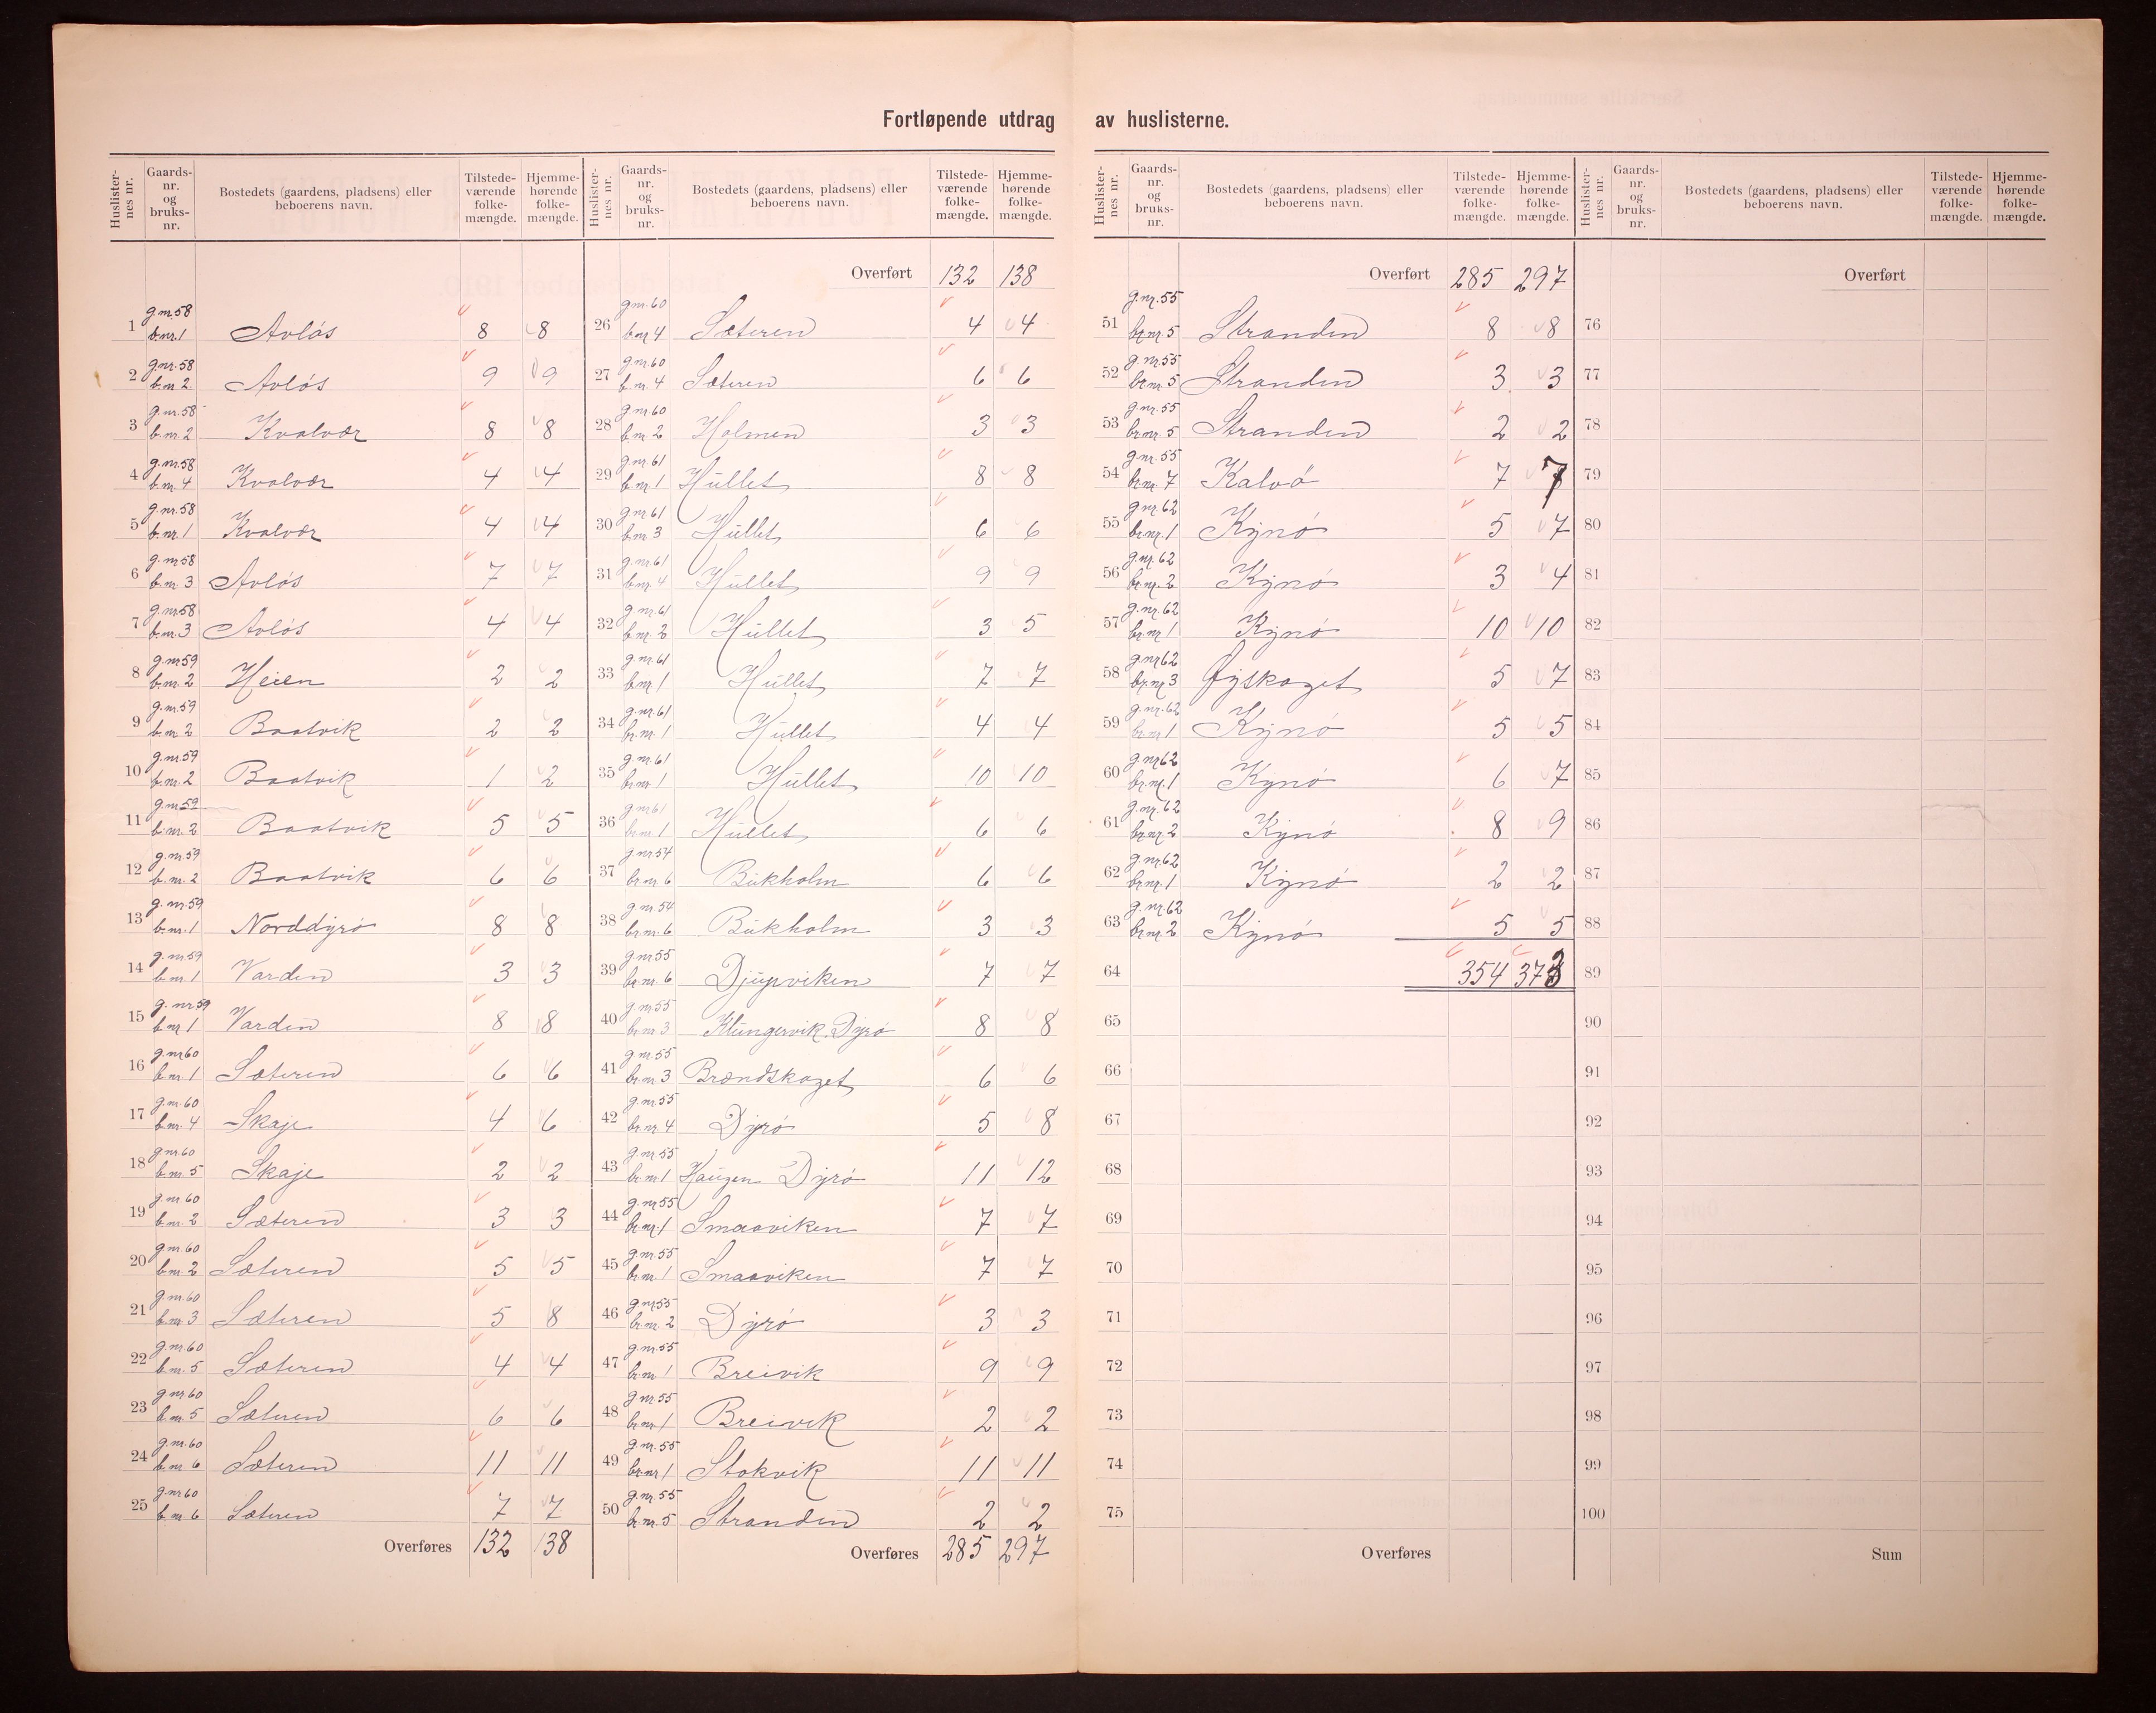 Fortløpende utdrag av huslisterne.
Huslister-nes nr. | Gaards-nr. og bruks-nr. | Bostedets (gaardens, pladsens) eller beboerens navn. | Tilstede-værende folke-mængde. | Hjemme-hørende folke-mængde.
1 g.nr.58 b.nr.1 Avløs 8 8
2 g.nr.58 b.nr.2 Avløs 9 9
3 g.nr.58 b.nr.2 Kvalvær 8 8
4 g.nr.58 b.nr.4 Kvalvær 4 4
5 g.nr.58 b.nr.1 Kvalvær 4 4
6 g.nr.58 b.nr.3 Avløs 7 7
7 g.nr.58 b.nr.3 Avløs 4 4
8 g.nr.59 b.nr.2 Heien 2 2
9 g.nr.59 b.nr.2 Baatvik 2 2
10 g.nr.59 b.nr.2 Baatvik 1 2
11 g.nr.59 b.nr.2 Baatvik 5 5
12 g.nr.59 b.nr.2 Baatvik 6 6
13 g.nr.59 b.nr.1 Norddyrø 8 8
14 g.nr.59 b.nr.1 Varden 3 3
15 g.nr.59 b.nr.1 Varden 8 8
16 g.nr.60 b.nr.1 Sæteren 6 6
17 g.nr.60 b.nr.4 Skaje 4 6
18 g.nr.60 b.nr.5 Skaje 2 2
19 g.nr.60 b.nr.2 Sæteren 3 3
20 g.nr.60 b.nr.2 Sæteren 5 5
21 g.nr.60 b.nr.3 Sæteren 5 8
22 g.nr.60 b.nr.5 Sæteren 4 4
23 g.nr.60 b.nr.5 Sæteren 6 6
24 g.nr.60 b.nr.6 Sæteren 11 11
25 g.nr.60 b.nr.6 Sæteren 7 7
Overføres 132 138
Huslister-nes nr. | Gaards-nr. og bruks-nr. | Bostedets (gaardens, pladsens) eller beboerens navn. | Tilstede-værende folke-mængde. | Hjemme-hørende folke-mængde.
Overført 132 138
26 g.nr.60 b.nr.4 Sæteren 4 4
27 g.nr.60 b.nr.4 Sæteren 6 6
28 g.nr.60 b.nr.2 Holmen 3 3
29 g.nr.61 b.nr.1 Hullet 8 8
30 g.nr.61 b.nr.3 Hullet 6 6
31 g.nr.61 b.nr.4 Hullet 9 9
32 g.nr.61 b.nr.2 Hullet 3 5
33 g.nr.61 b.nr.1 Hullet 7 7
34 g.nr.61 br.nr.1 Hullet 4 4
35 g.nr.61 br.nr.1 Hullet 10 10
36 g.nr.61 br.nr.1 Hullet 6 6
37 g.nr.54 br.nr.6 Bukholm 6 6
38 g.nr.54 br.nr.6 Bukholm 3 3
39 g.nr.55 br.nr.6 Djupviken 7 7
40 g.nr.55 br.nr.3 Klungervik Dyrø 8 8
41 g.nr.55 br.nr.3 Brændskaget 6 6
42 g.nr.55 br.nr.4 Dyrø 5 8
43 g.nr.55 br.nr.1 Haugen Dyrø 11 12
44 g.nr.55 br.nr.1 Smaaviken 7 7
45 g.nr.55 br.nr.1 Smaaviken 7 7
46 g.nr.55 br.nr.2 Dyrø 3 3
47 g.nr.55 br.nr.1 Breivik 9 9
48 g.nr.55 br.nr.1 Breivik 2 2
49 g.nr.55 br.nr.1 Stokvik 11 11
50 g.nr.55 br.nr.5 Stranden 2 2
Overføres 285 297
Huslister-nes nr. | Gaards-nr. og bruks-nr. | Bostedets (gaardens, pladsens) eller beboerens navn. | Tilstede-værende folke-mængde. | Hjemme-hørende folke-mængde.
Overført 285 297
51 g.nr.55 br.nr.5 Stranden 8 8
52 g.nr.55 br.nr.5 Stranden 3 3
53 g.nr.55 br.nr.5 Stranden 2 2
54 g.nr.55 br.nr.7 Kalvø 7 7
55 g.nr.62 br.nr.1 Kynø 5 7
56 g.nr.62 br.nr.2 Kynø 3 4
57 g.nr.62 br.nr.1 Kynø 10 10
58 g.nr.62 br.nr.3 Øyskaget 5 7
59 g.nr.62 br.nr.1 Kynø 5 5
60 g.nr.62 br.nr.1 Kynø 6 7
61 g.nr.62 br.nr.2 Kynø 8 9
62 g.nr.62 br.nr.1 Kynø 2 2
63 g.nr.62 br.nr.2 Kynø 5 5
64 354 373
65
66
67
68
69
70
71
72
73
74
75
Overføres
Huslister-nes nr. | Gaards-nr. og bruks-nr. | Bostedets (gaardens, pladsens) eller beboerens navn. | Tilstede-værende folke-mængde. | Hjemme-hørende folke-mængde.
Overført
76
77
78
79
80
81
82
83
84
85
86
87
88
89
90
91
92
93
94
95
96
97
98
99
100
Sum